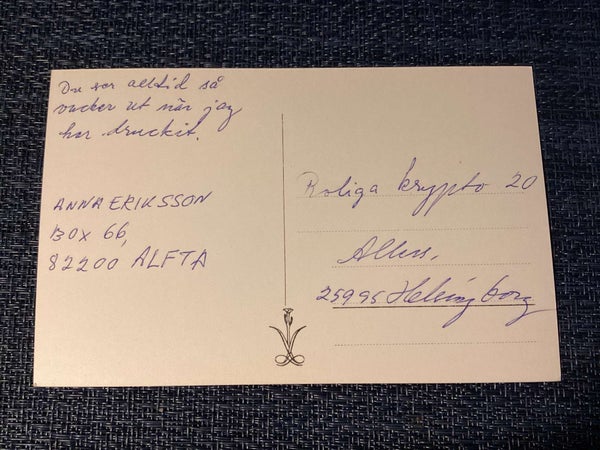 Du ser alltid så
vacker ut när jag
har druckit.
ANNA ERIKSSON
BOX 66,
82200 ALFTA
Roliga krypto 20
Allers,
25995 Helsingborg